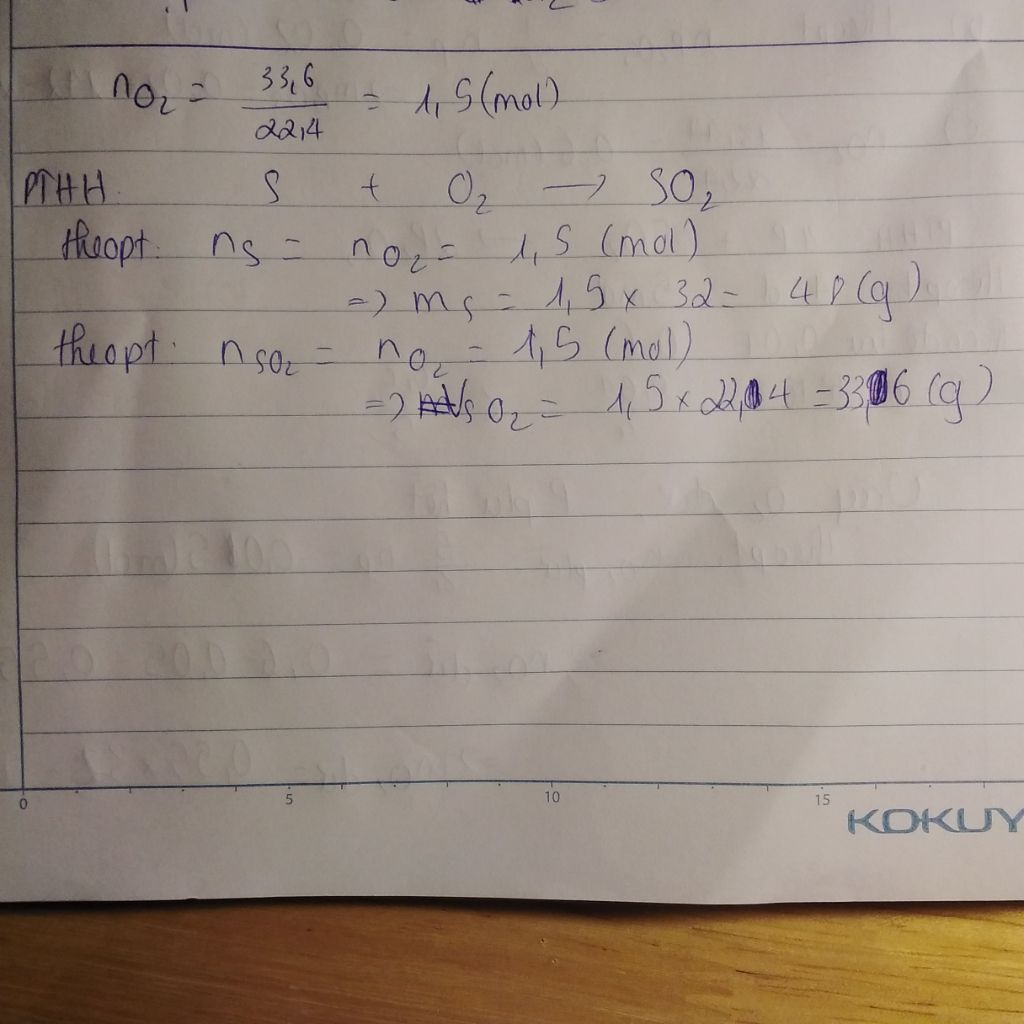 nO2 = 33,6 / 22,4 = 1,5 (mol)
PTHH: S + O2 → SO2
theo pt: nS = nO2 = 1,5 (mol)
=> mS = 1,5 x 32 = 48 (g)
theo pt: nSO2 = nO2 = 1,5 (mol)
=> VSO2 = 1,5 x 22,4 = 33,6 (g)
0 5 10 15
KOKUY